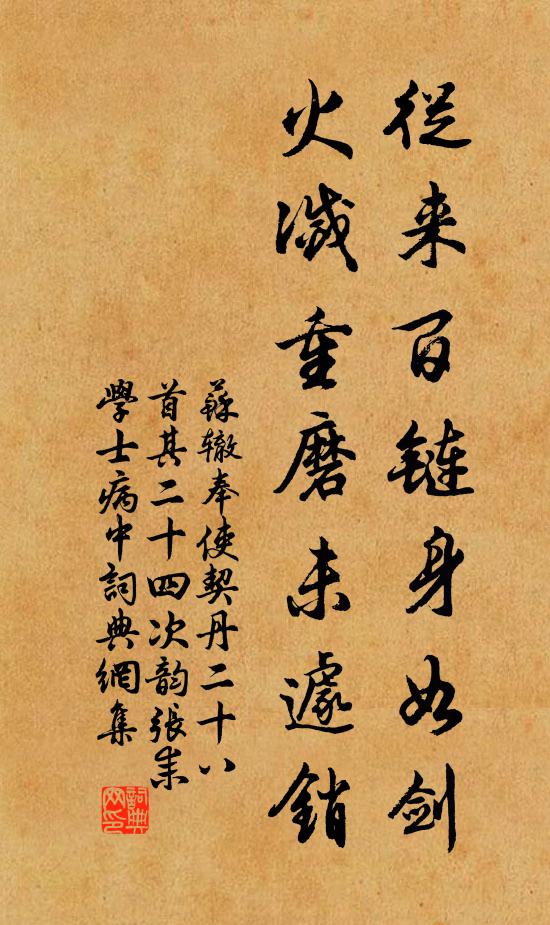 從来百鏈身如劍
火滅重磨未遽銷
蘇辙奉使契丹二十八
首其二十四次韵張耒
學士病中詞典網集